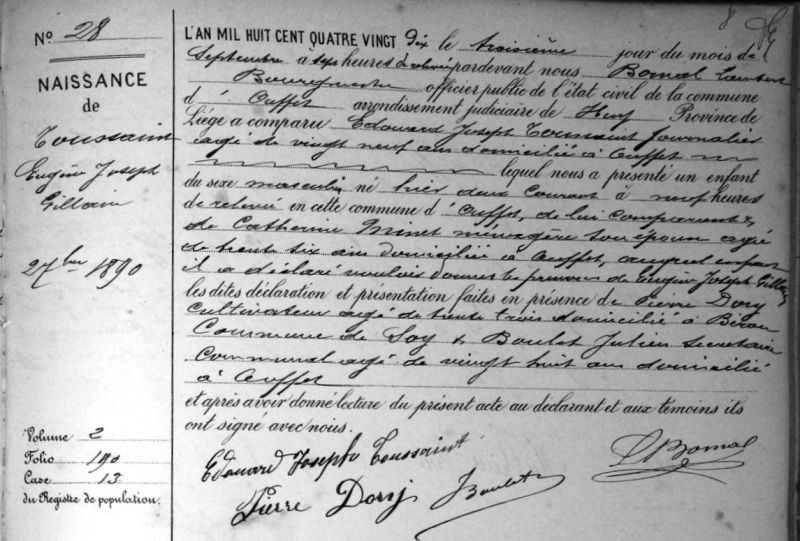 N° 28
NAISSANCE
de
Toussaint
Eugène Joseph
Gillain
2 7bre 1890
Volume 2
Folio 190
Case 13
du Registre de population.
L'AN MIL HUIT CENT QUATRE VINGT dix le troisième jour du mois de
Septembre à sept heures de relevé pardevant nous Bomal Lambert
Bourgmestre officier public de l'état civil de la commune
d' Ouffet arrondissement judiciaire de Huy Province de
Liége a comparu Edouard Joseph Toussaint journalier
agé de vingt neuf ans domicilié à Ouffet
lequel nous a présenté un enfant
du sexe masculin né hier deux courant à neuf heures
de relevée en cette commune d'Ouffet, de lui comparant &
de Catherine Minet ménagère son épouse agée
de trente six ans domiciliée à Ouffet, auquel enfant
il a déclaré vouloir donner les prénoms de Eugène Joseph Gillain
les dites déclaration et présentation faites en présence de Pierre Dory
cultivateur agé de trente trois domicilié à Biron
Commune de Soy & Boulet Julien Secretaire
Communal agé de vingt huit ans domicilié
à Ouffet
et après avoir donné lecture du présent acte au déclarant et aux témoins ils
ont signé avec nous.
Edouard Joseph Toussaint
LBomal
Pierre Dory
JBoulet